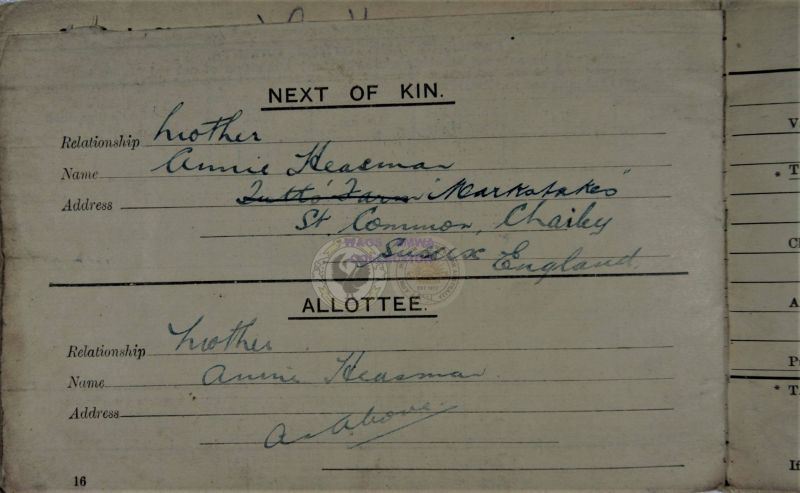 NEXT OF KIN.
Relationship Mother
Name Annie Heasman
Address Tutts Farm "Markstakes"
St. Common, Chailey
Sussex England
ALLOTTEE.
Relationship Mother
Name Annie Heasman
Address
As above
16
V
* T
Cl
A
* T
If